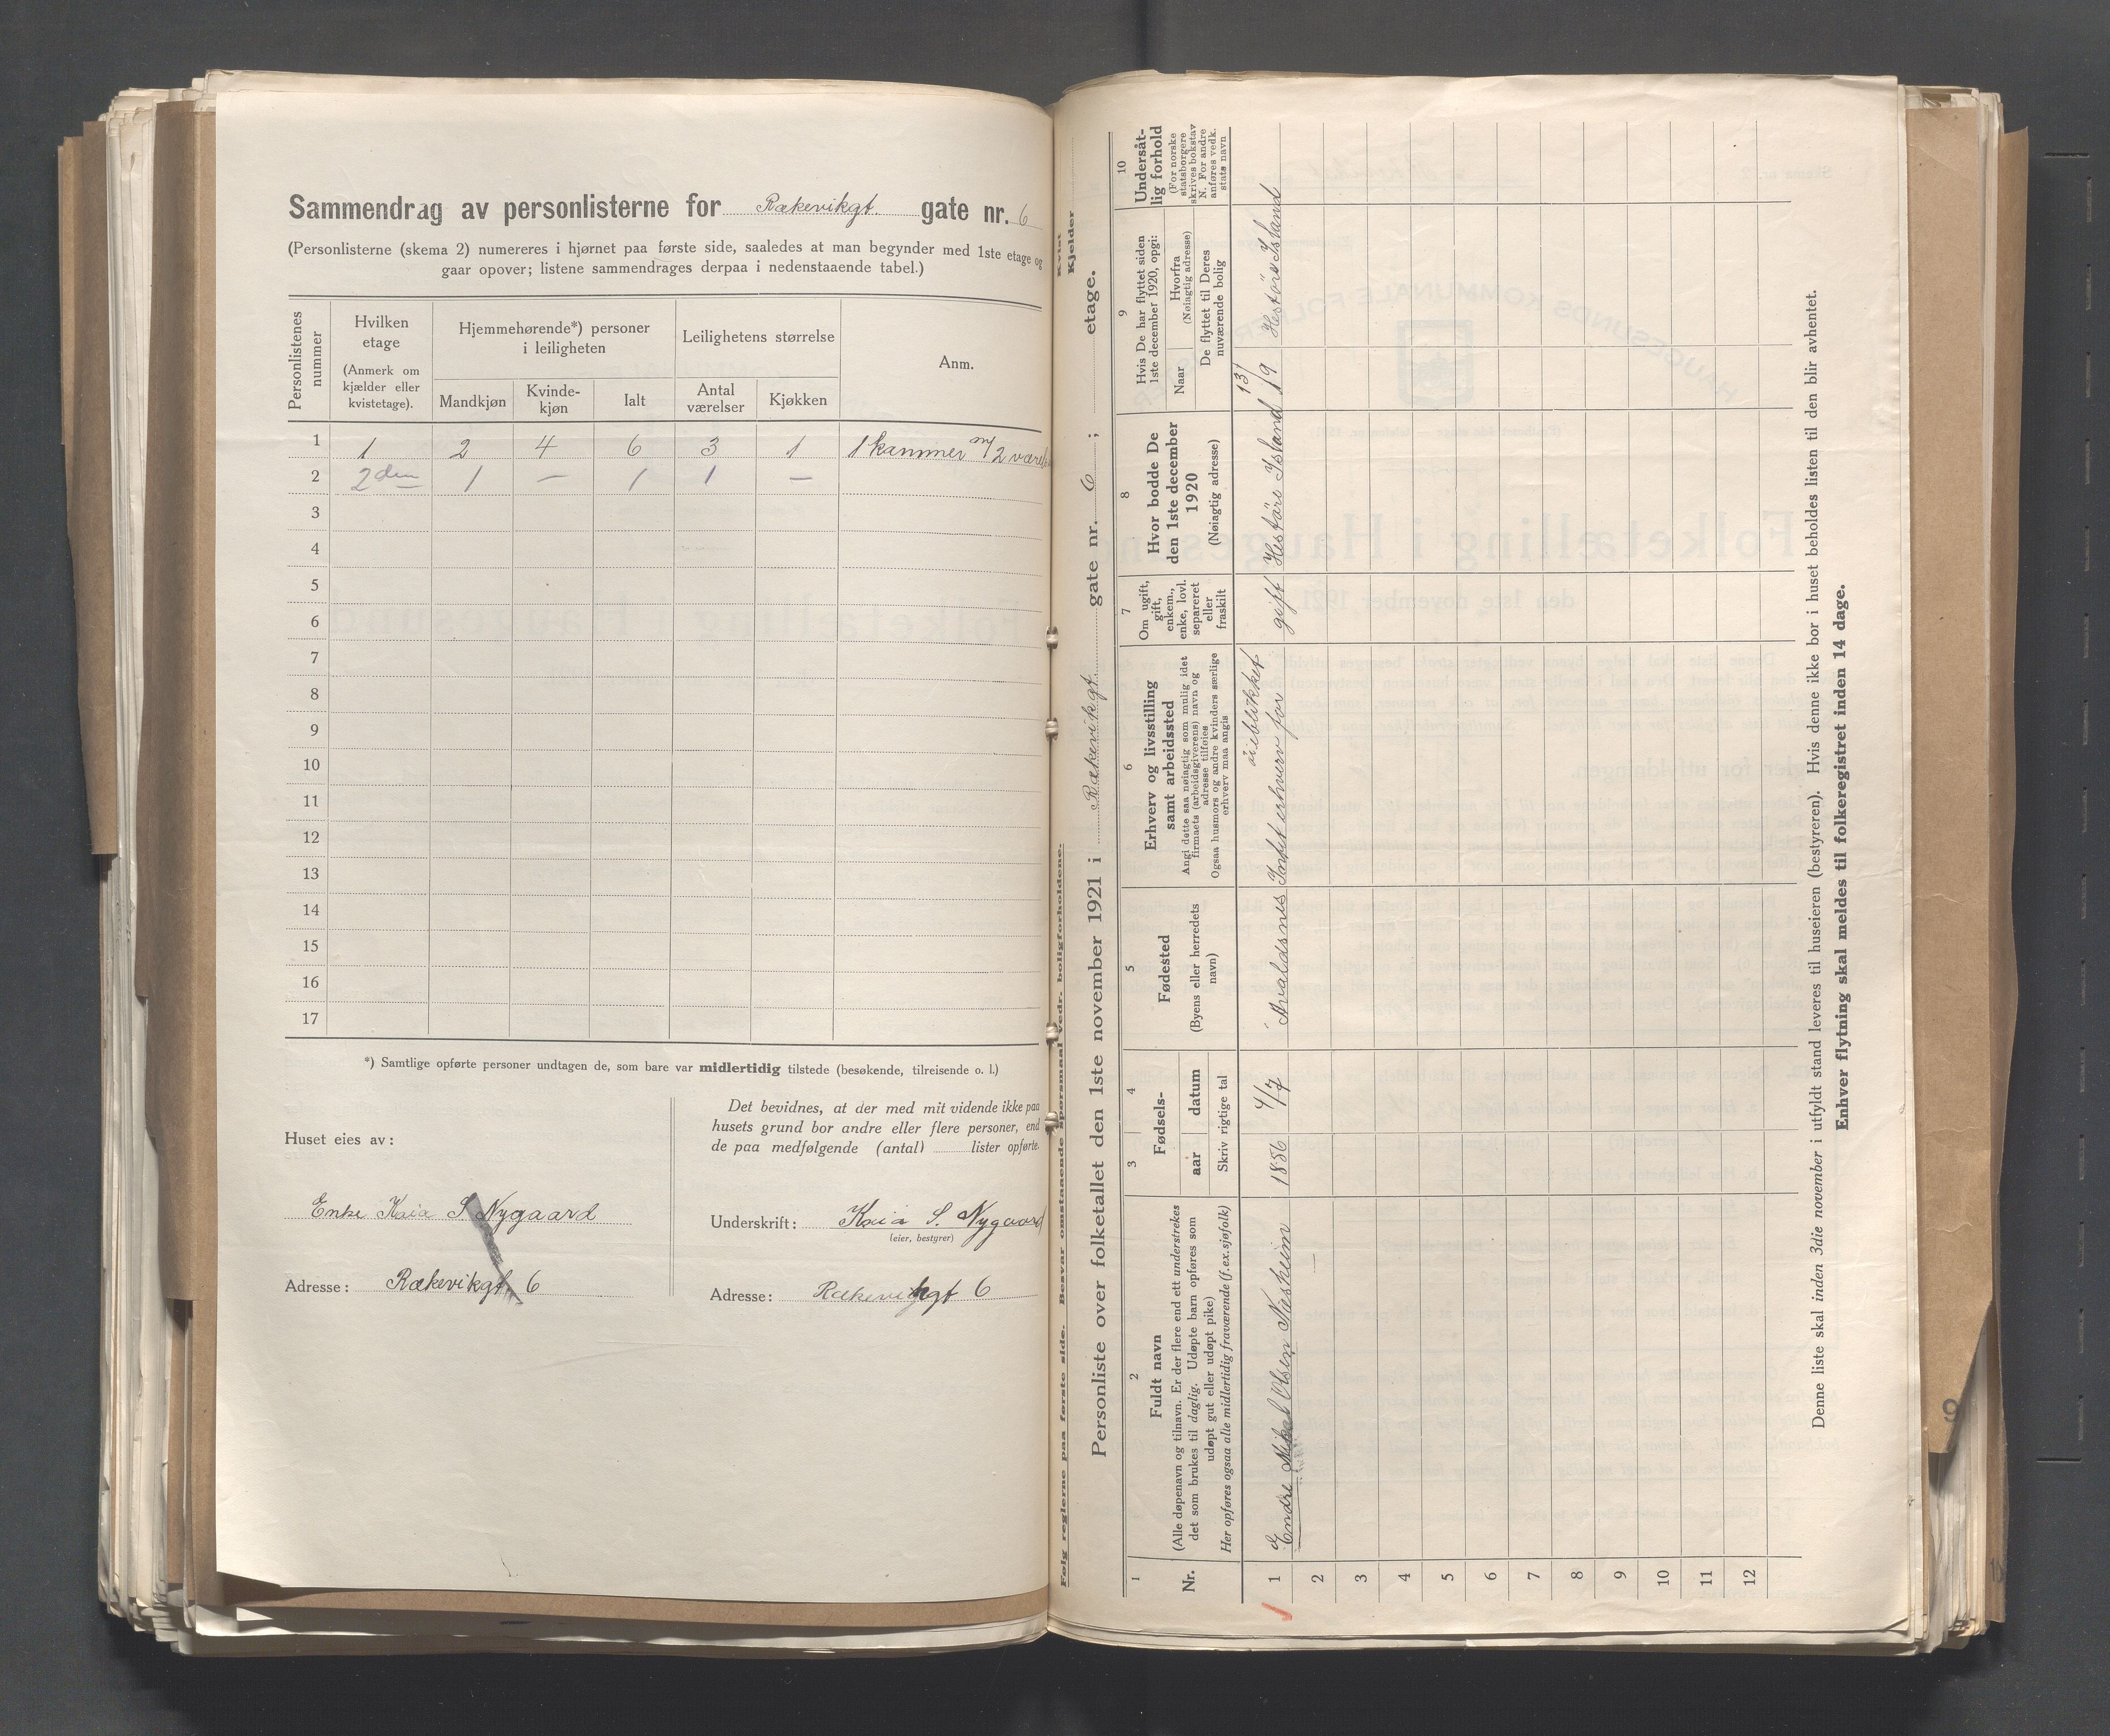 Sammendrag av personlisterne for Rækevikgt. gate nr. 6
(Personlisterne (skema 2) numereres i hjørnet paa første side, saaledes at man begynder med 1ste etage og
gaar opover; listene sammendrages derpaa i nedenstaaende tabel.)
Personlistenes nummer
Hvilken etage
(Anmerk om kjælder eller kvistetage).
Hjemmehørende*) personer i leiligheten
Mandkjøn
Kvinde-kjøn
Ialt
Leilighetens størrelse
Antal værelser
Kjøkken
Anm.
1 1 2 4 6 3 1 1 kammer m/ 2 værelser
2 2den 1 — 1 1 —
3
4
5
6
7
8
9
10
11
12
13
14
15
16
17
*) Samtlige opførte personer undtagen de, som bare var midlertidig tilstede (besøkende, tilreisende o. l.)
Huset eies av:
Enke Kaia S Nygaard
Adresse: Rækevikgt. 6
Det bevidnes, at der med mit vidende ikke paa
husets grund bor andre eller flere personer, end
de paa medfølgende (antal) lister opførte.
Underskrift: Kaia S. Nygaard
(eier, bestyrer)
Adresse: Rækevikgt 6
Følg reglerne paa første side. Besvar omstaaende spørsmaal vedr. boligforholdene.
Kvist
Kjelder
Personliste over folketallet den 1ste november 1921 i Rækevikgt. gate nr. 6; etage.
1
Nr.
2
Fuldt navn
(Alle døpenavn og tilnavn. Er der flere end ett understrekes
det som brukes til daglig. Udøpte barn opføres som
udøpt gut eller udøpt pike)
Her opføres ogsaa alle midlertidig fraværende (f.ex. sjøfolk)
3 4
Fødsels-
aar datum
Skriv rigtige tal
5
Fødested
(Byens eller herredets navn)
6
Erhverv og livsstilling
samt arbeidssted
Angi dette saa nøiagtig som mulig idet
firmaets (arbeidsgiverens) navn og
adresse tilføies
Ogsaa husmors og andre kvinders særlige
erhverv maa angis
7
Om ugift,
gift,
enkem.,
enke, lovl.
separeret
eller
fraskilt
8
Hvor bodde De
den 1ste december
1920
(Nøiagtig adresse)
9
Hvis De har flyttet siden
1ste december 1920, opgi:
Naar
Hvorfra
(Nøiagtig adresse)
De flyttet til Deres
nuværende bolig
10
Undersåt-
lig forhold
(For norske
statsborgere
skrives bokstav
N. For andre
anføres vedk.
stats navn
1 Endre Mikal Olsen Næsheim 1856 4/7 Avaldsnes Intet erhverv for øieblikket gift Hestöre Island 13/19 Hestöre Island
2 —
3
4
5
6
7
8
9
10
11
12
Denne liste skal inden 3die november i utfyldt stand leveres til huseieren (bestyreren). Hvis denne ikke bor i huset beholdes listen til den blir avhentet.
Enhver flytning skal meldes til folkeregistret inden 14 dage.